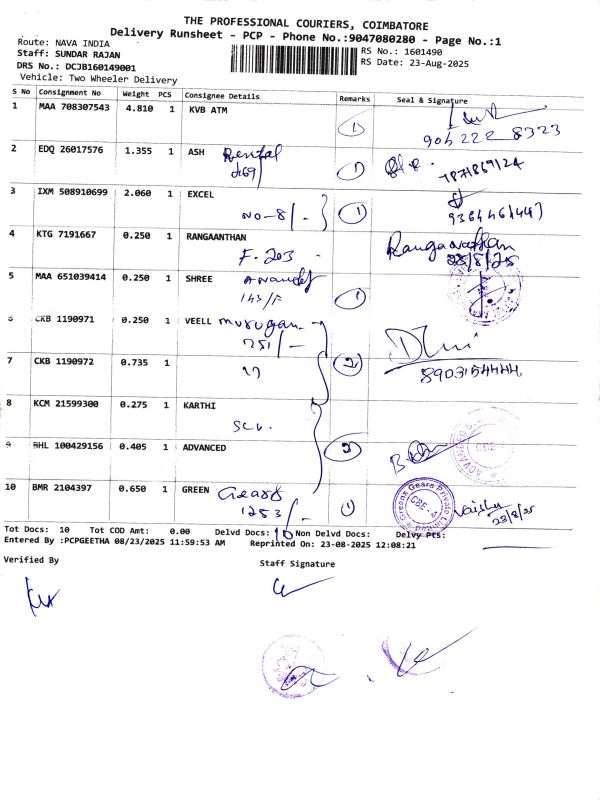 THE PROFESSIONAL COURIERS, COIMBATORE
Delivery Runsheet - PCP - Phone No.:9047080280 - Page No.:1
Route: NAVA INDIA
Staff: SUNDAR RAJAN
DRS No.: DCJB160149001
Vehicle: Two Wheeler Delivery
RS No.: 1601490
RS Date: 23-Aug-2025
S No Consignment No Weight PCS Consignee Details Remarks Seal & Signature
1 MAA 708307543 4.810 1 KVB ATM 1
904 222 8323
2 EDQ 26017576 1.355 1 ASH Rental 1
7871869124
3 IXM 508910699 2.060 1 EXCEL
NO-8/- 1
4 KTG 7191667 0.250 1 RANGAANTHAN Ranganathan
F-203 23/8/25
5 MAA 651039414 0.250 1 SHREE Anandas
143/F 1
6 CKB 1190971 0.250 1 VEELL murugan
1251/-
7 CKB 1190972 0.735 1 2
8903154444
8 KCM 21599300 0.275 1 KARTHI
9 BHL 100429156 0.405 1 ADVANCED 2
CBE
10 BMR 2104397 0.650 1 GREEN Gears
1253/- 1
Greens Gears Private Limited
CBE-4
23/8/25
Tot Docs: 10 Tot COD Amt: 0.00 Delvd Docs: 10 Non Delvd Docs: Delvy Pts:
Entered By :PCPGEETHA 08/23/2025 11:59:53 AM Reprinted On: 23-08-2025 12:08:21
Verified By Staff Signature